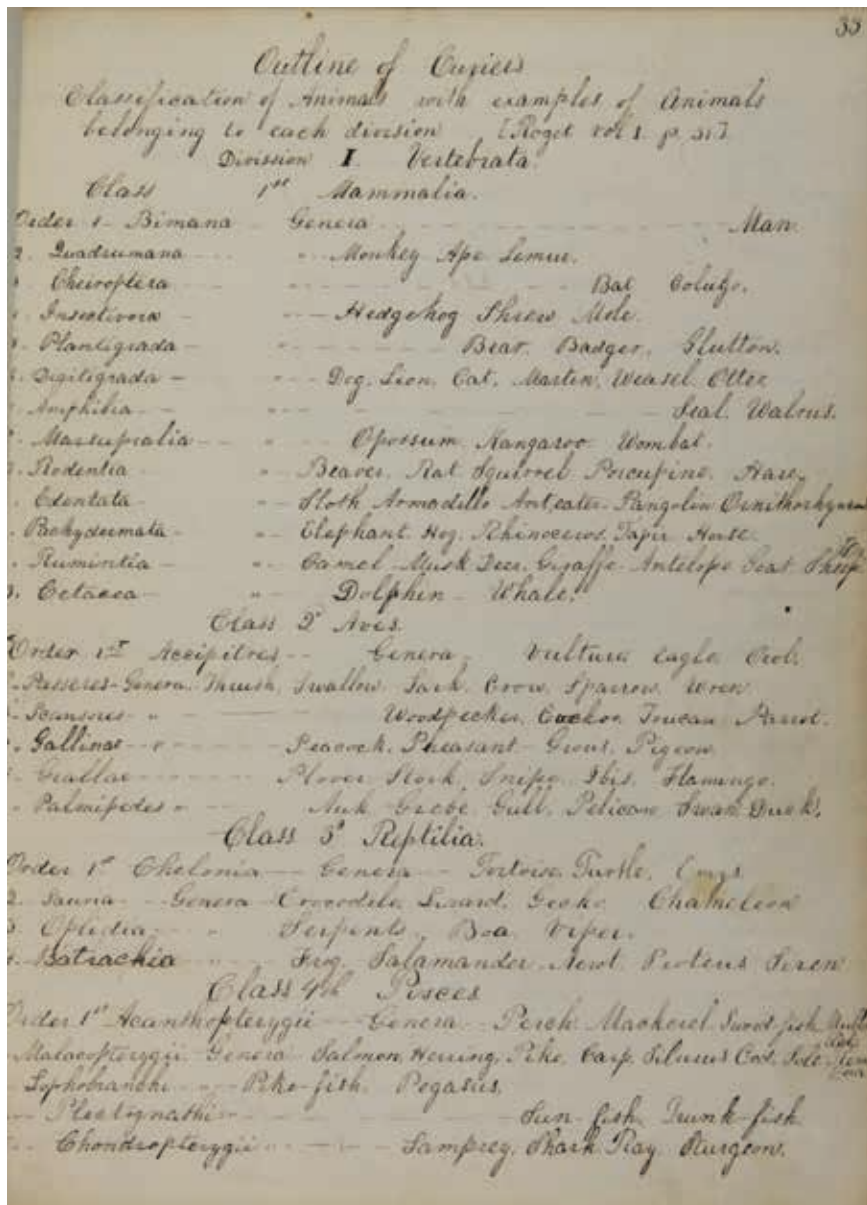 33
Outline of Cuviers
Classification of Animals with examples of Animals
belonging to each division [Roget vol 1. p. 31]
Division I. Vertebrata.
Class 1st Mammalia.
Order 1 - Bimana - Genera - Man.
2. Quadrumana " Monkey Ape Lemur.
Cheiroptera Bat Colugo.
Insectivora Hedgehog Shrew Mole.
Plantigrada Bear. Badger. Glutton.
Digitigrada - Dog. Lion. Cat. Martin. Weasel. Otter
Amphibia Seal. Walrus.
Marsupialia " Opossum. Kangaroo Wombat.
Rodentia " Beaver. Rat Squirrel Porcupine. Hare.
Edentata " Sloth Armadillo Ant,eater. Pangolin
Pachydermata " Elephant. Hog. Rhinoceros. Tapir Horse.
Rumintia " Camel Musk Deer. Giraffe. Antelope Goat Sheep
Cetacea " Dolphin - Whale.
Class 2d Aves.
Order 1st Accipitres - Genera - Vulture, Eagle, Owl.
Passeres - Genera. Thrush, Swallow. Lark. Crow. Sparrow. Wren
Scansores " Woodpecker. Cuckoo Toucan Parrot.
Gallinae " Peacock. Pheasant - Grous. Pigeon.
Grallae Plover. Stork. Snipe. Ibis. Flamingo.
Palmipedes " Auk Grebe Gull. Pelican Swan Duck.
Class 3d Reptilia.
Order 1st Chelonia - Genera - Tortoise, Turtle, Emys
2. Sauria - Genera - Crocodile. Lizard. Gecko. Chameleon
" Serpents. Boa. Viper.
Batrachia " Frog. Salamander. Newt. Proteus Siren
Class 4th Pisces
Order 1st Acanthopterygii - Genera - Perch Mackerel Sword-fish
Malacopterygii. Genera - Salmon, Herring, Pike, Carp. Silurus Cod. Sole.
Lophobranchi " Pike-fish. Pegasus.
Plectognathi Sun-fish. Trunk-fish
Chondropterygii Lamprey. Shark Ray Sturgeon.